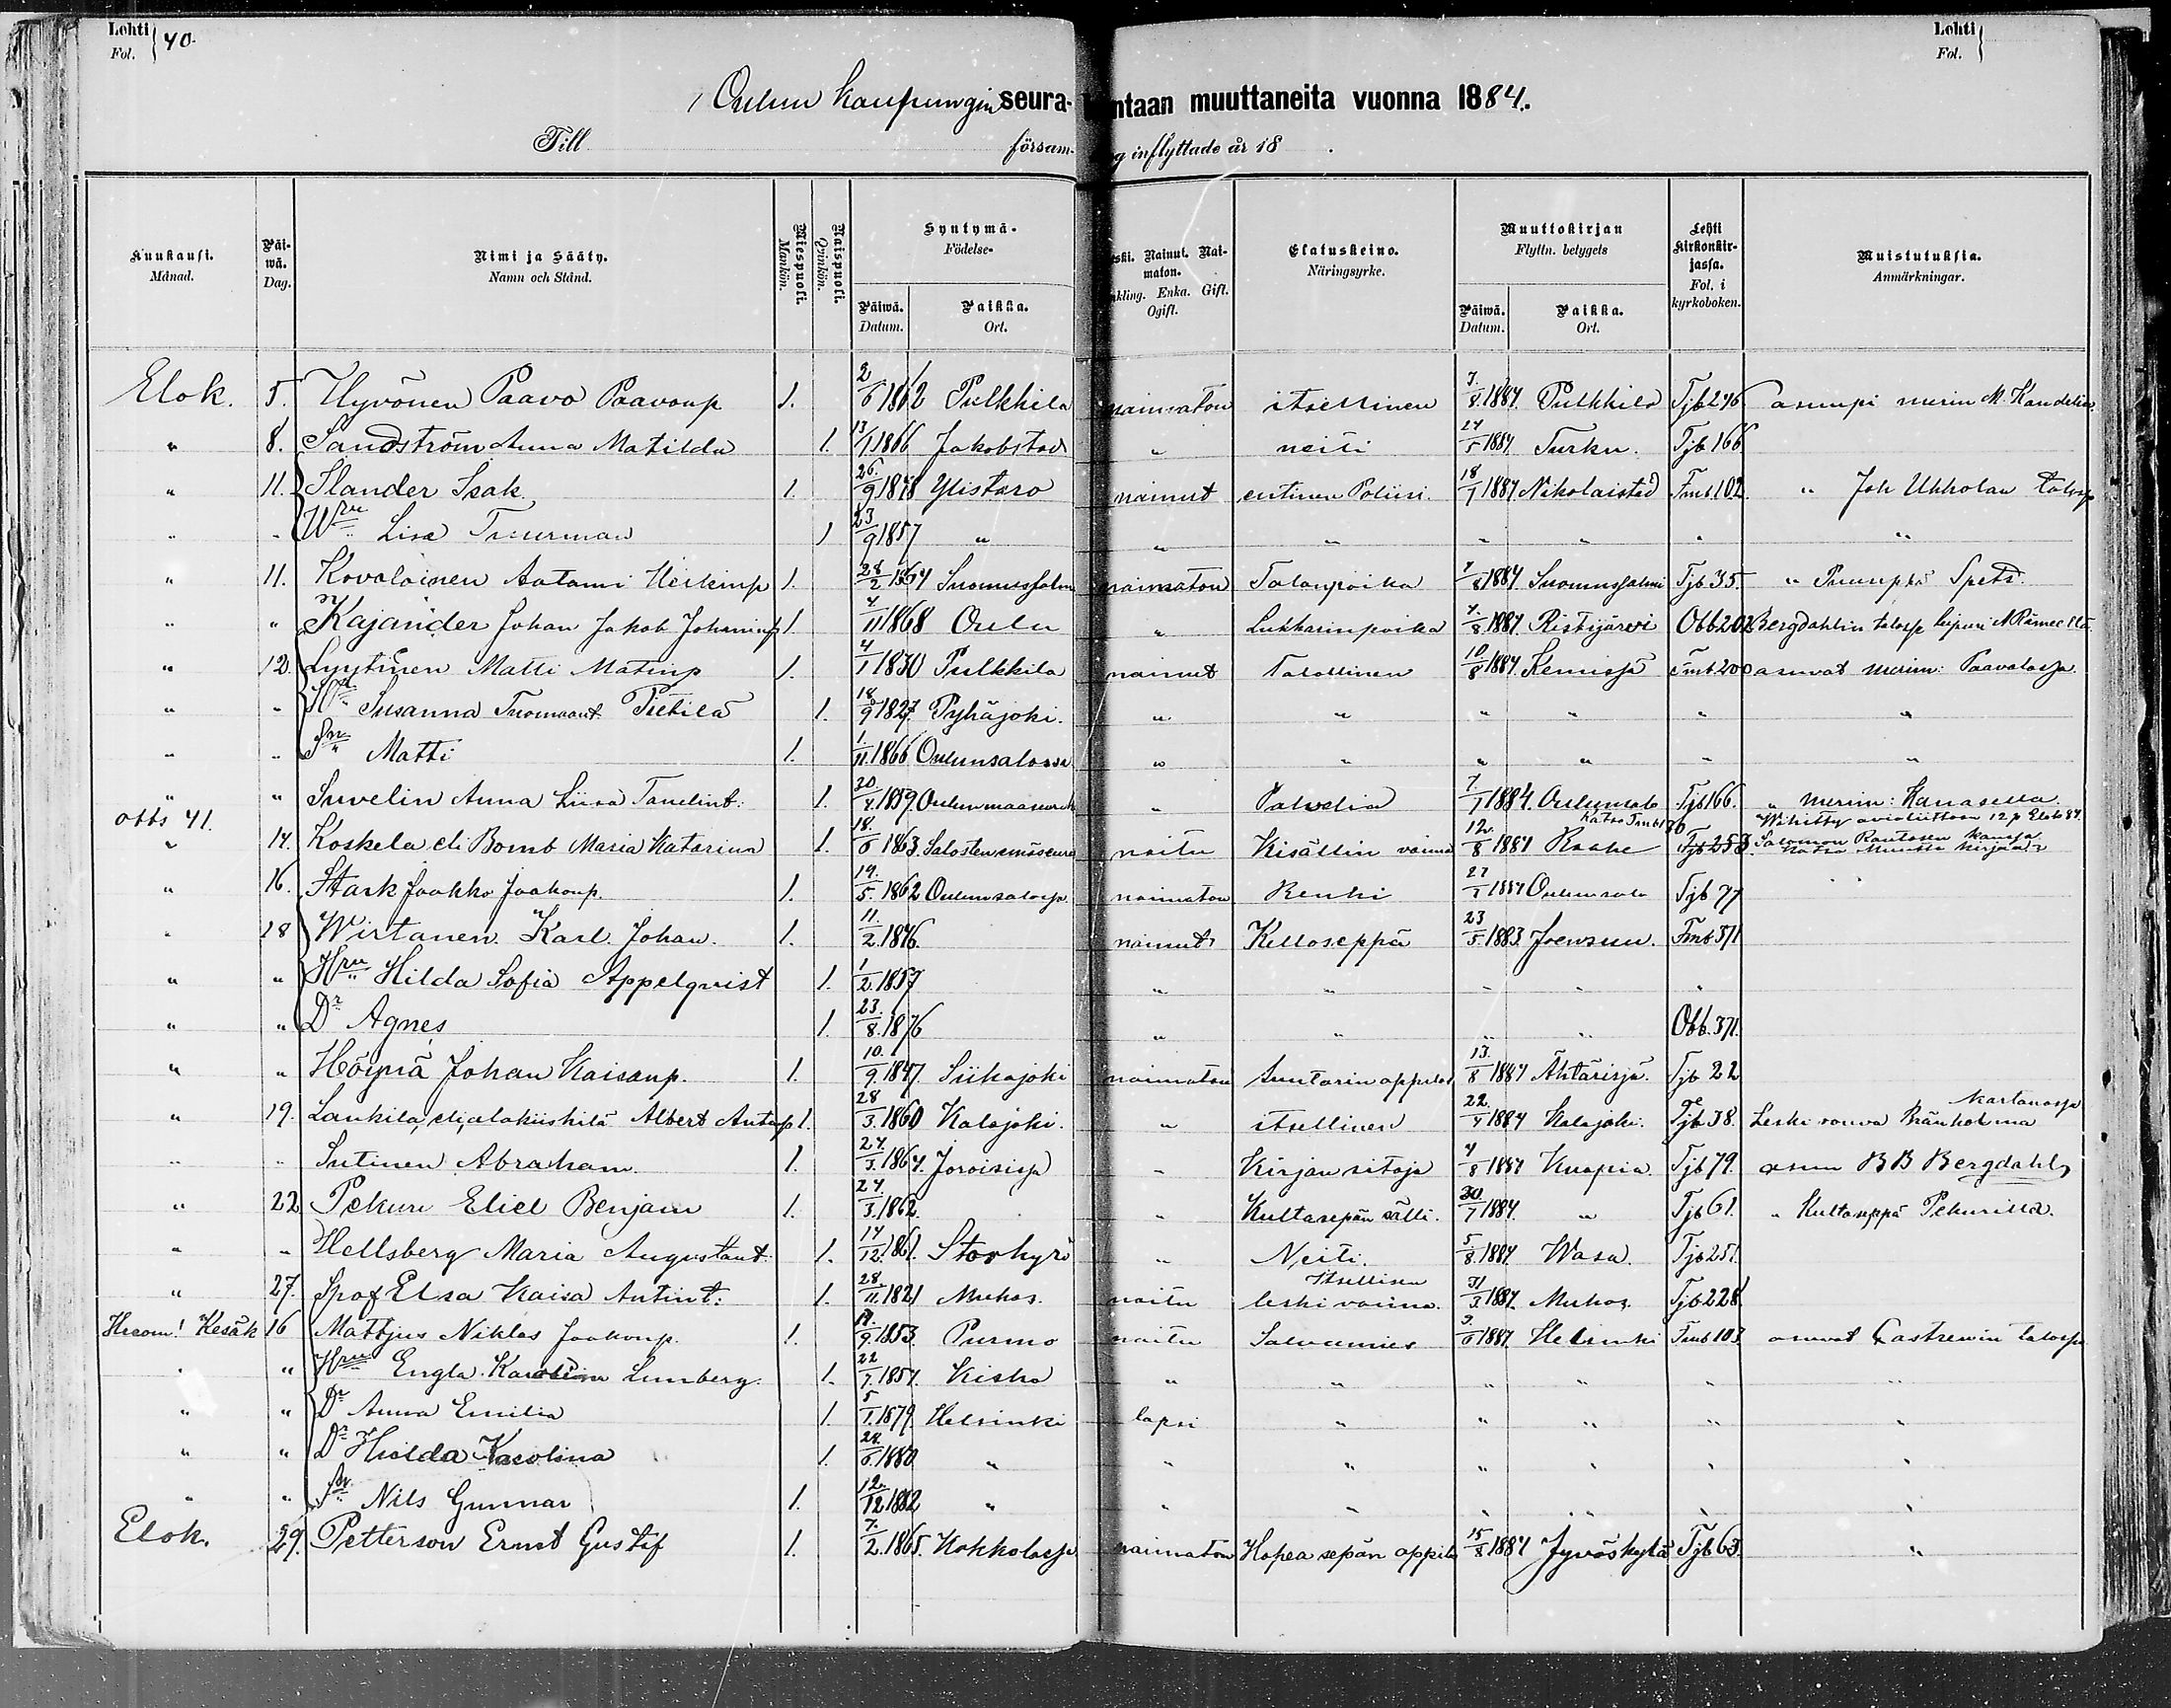 Lehti Fol. } 40.
Lehti Fol. }
Oulun kaupungin seura- ntaan muuttaneita vuonna 1884.
Till försam- g inflyttade år 18 .
Kuukausi. Månad. Päi-wä. Dag. Nimi ja Sääty. Namn och Stånd. Miespuoli. Mankön. Naispuoli. Qvinkön. Syntymä- Födelse- Päiwä. Datum. Paikka. Ort. eski. Nainut. Nai-maton. nkling. Enka. Gift. Ogift. Elatuskeino. Näringsyrke. Muuttokirjan Flyttn. betygets Päiwä. Datum. Paikka. Ort. Lehti kirkonkir-jassa. Fol. i kyrkoboken. Muistutuksia. Anmärkningar.
Elok. 5. Hyvönen Paavo Paavonp 1. 2/6 1862 Pulkkila naimaton itsellinen 7/8 1884. Pulkkila Tjb 246 asuupi merim M. Kandelin
" 8. Sandström Anna Matilda 1. 13/1 1866 Jakobstad " neiti 24/5 1884. Turku. Tjb 166
" 11. Ilander Isak 1. 26/9 1848 Ylistaro nainut entinen Poliisi. 18/7 1884. Nikolaistad Tmb 102. " Joh Uhholan talossa
" " Wmu Lisa Tuurman 1 23/9 1857 " " " " " " "
" 11. Kovalainen Aatami Heikinp 1. 28/2 1864 Suomussalmi naimaton Talonpoika 7/8 1884. Suomussalmi Tjb 35. " Spets.
" " Kajander Johan Jakob Johaninp 1 4/11 1868 Oulu " Lukkarinpoika 4/8 1884. Ristijärvi Obb 202 Bergdahlin talossa
" 12. Lyytinen Matti Matinp 1. 4/1 1830 Pulkkila nainut Talollinen 10/8 1884. Kemissä Tmb 200 asuvat merim: Paavolassa.
" " Hru Susanna Tuomaant. Pietilä 1. 18/9 1827. Pyhäjoki. " " " " " "
" " Sn Matti 1. 1/11. 1866 Oulunsalossa " " " " " "
" " Suvelin Anna Liisa Tanelint. 1. 20/8. 1859. Oulun maaseurak " Palvelia 7/7 1884. Oulunsalo Tjb 166. " merim: Kanasella.
obbs 41. katso Tmb 130 Wihitty avioliittoon 12 p Elok 84.
" 14. Koskela eli Bomb Maria Katarina 1. 18./6 1863. Salosten emäseura naitu Kisällin vaimo 12/8 1884 Raahe Tjb 253. Salomon Rautasen kanssa
16. Stark Jaakko Jaakonp. 1. 19./5. 1862 Oulunsalossa naimaton Renki 27/7 1884 Oulunsalo Tjb 77
" 18 Wirtanen. Karl. Johan. 1. 11./2. 1846. nainut Kelloseppä 23/5. 1883. Joensuu. Tmb 371
" " Hru Hilda Sofia Appelqvist 1. 1/2. 1857 " " " " "
" " Dr Agnes 1. 23./8. 1876 " " " " Obb. 371.
" " Höynä Johan Kaisanp. 1. 10./9. 1847. Siikajoki naimaton Suutarin oppilas 13./8 1884 Ähtärissä. Tjb 22
" 19. Lankila, eli, alakiiskilä Albert Antinp 1. 28/3. 1860 Kalajoki. " itsellinen 22./4 1884 Kalajoki. Tjb 38. Leski rouva Bränholma kartanossa
" " Sutinen Abraham. 1. 24/3. 1864. Joroisissa " Kirjansitoja 4/8 1884 Kuopio. Tjb 79. asuu B B Bergdahl
" 22 Pekuri Eliel Benjam 1. 24/3. 1862. " Kultasepän sälli. 30/7 1884. " Tjb 61. " Kultaseppä Pekurilla.
" " Hellsberg Maria Augustant. 1. 14/12. 1861. Storkyrö " Neiti. 5/8. 1884. Wasa. Tjb 251.
" 27. Spof Elsa Kaisa Antint. 1. 28./11. 1821 Muhos. naitu Itsellisen leski vaimo. 31/3. 1884. Muhos. Tjb 228
Huom! Kesäk 16 Mattjus Niklas Jaakonp. 1. 19/9. 1853. Purmo naitu Salvumies 3./6 1884. Helsinki Tmb 103 asuvat Castrenin talossa
" " Hru Engla Karolina Lunberg. 1. 22/7. 1854. Kisko " " " " " "
" " Dr Anna Emilia 1. 5/1. 1879. Helsinki lapsi " " " " "
" " Dr Hulda Karolina 1. 24./6. 1880 " " " " " " "
" " Sn Nils Gunnar 1. 12./12 1882 " " " " " " "
Elok. 29. Petterson Ernst Gustaf 1. 7./2. 1865. Kokkolassa naimaton Hopea sepän oppilas 15/8 1884 Jyväskylä Tjb 63. "